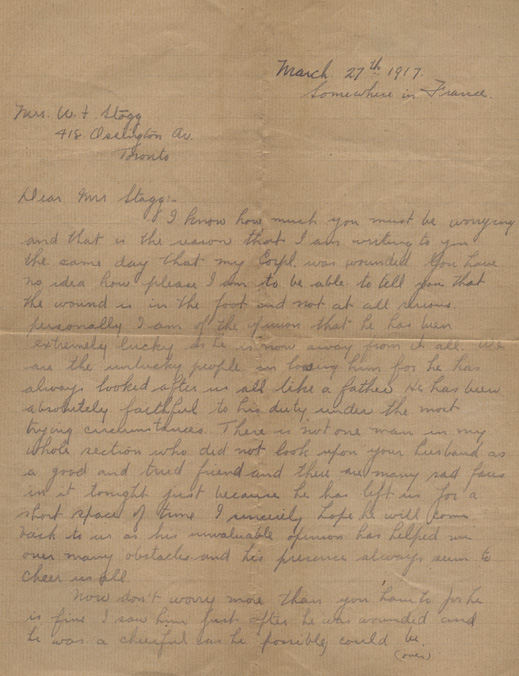 March 27th 1917.
Somewhere in France.
Mrs. W. F. Stagg
418 Ossington Av.
Toronto
Dear Mrs Stagg:-
I know how much you must be worrying
and that is the reason that I am writing to you
the same day that my Corpl. was wounded You have
no idea how please I am to be able to tell you that
the wound is in the foot and not at all serious.
personally I am of the opinion that he has been
extremely lucky as he is now away from it all. We
are the unlucky people in losing him for he has
always looked after us all like a father He has been
absolutely faithful to his duty under the most
trying circumstances. There is not one man in my
whole section who did not look upon your husband as
a good and tried friend and there are many sad faces
in it tonight just because he has left us for a
short space of time I sincerely hope he will come
back to us as his unvaluable opinion has helped me
over many obstacles and his presence always seem to
cheer us all.
Now don't worry more than you have to for he
is fine I saw him just after he was wounded and
he was a cheerful as he possibly could be.
(over)